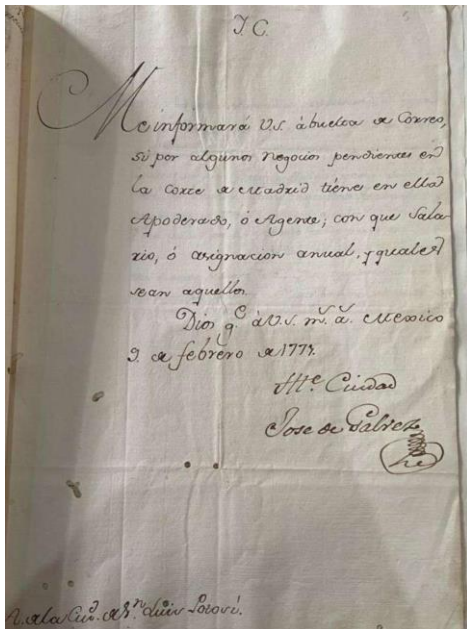 I. C.
Me informará V.S. à buelta de Correo,
si por algunos negocios pendientes en
la Corte de Madrid tiene en ella
Apoderado, ó Agente; con que Sala-
rio, ó asignacion anual, y quales
sean aquellos.
Dios g.e à V.S. m.s a.s Mexico
9. de febrero de 1771.
Ciudad
Jose de Galvez
N. ala Ciu.d de S.n Luis Potosi.